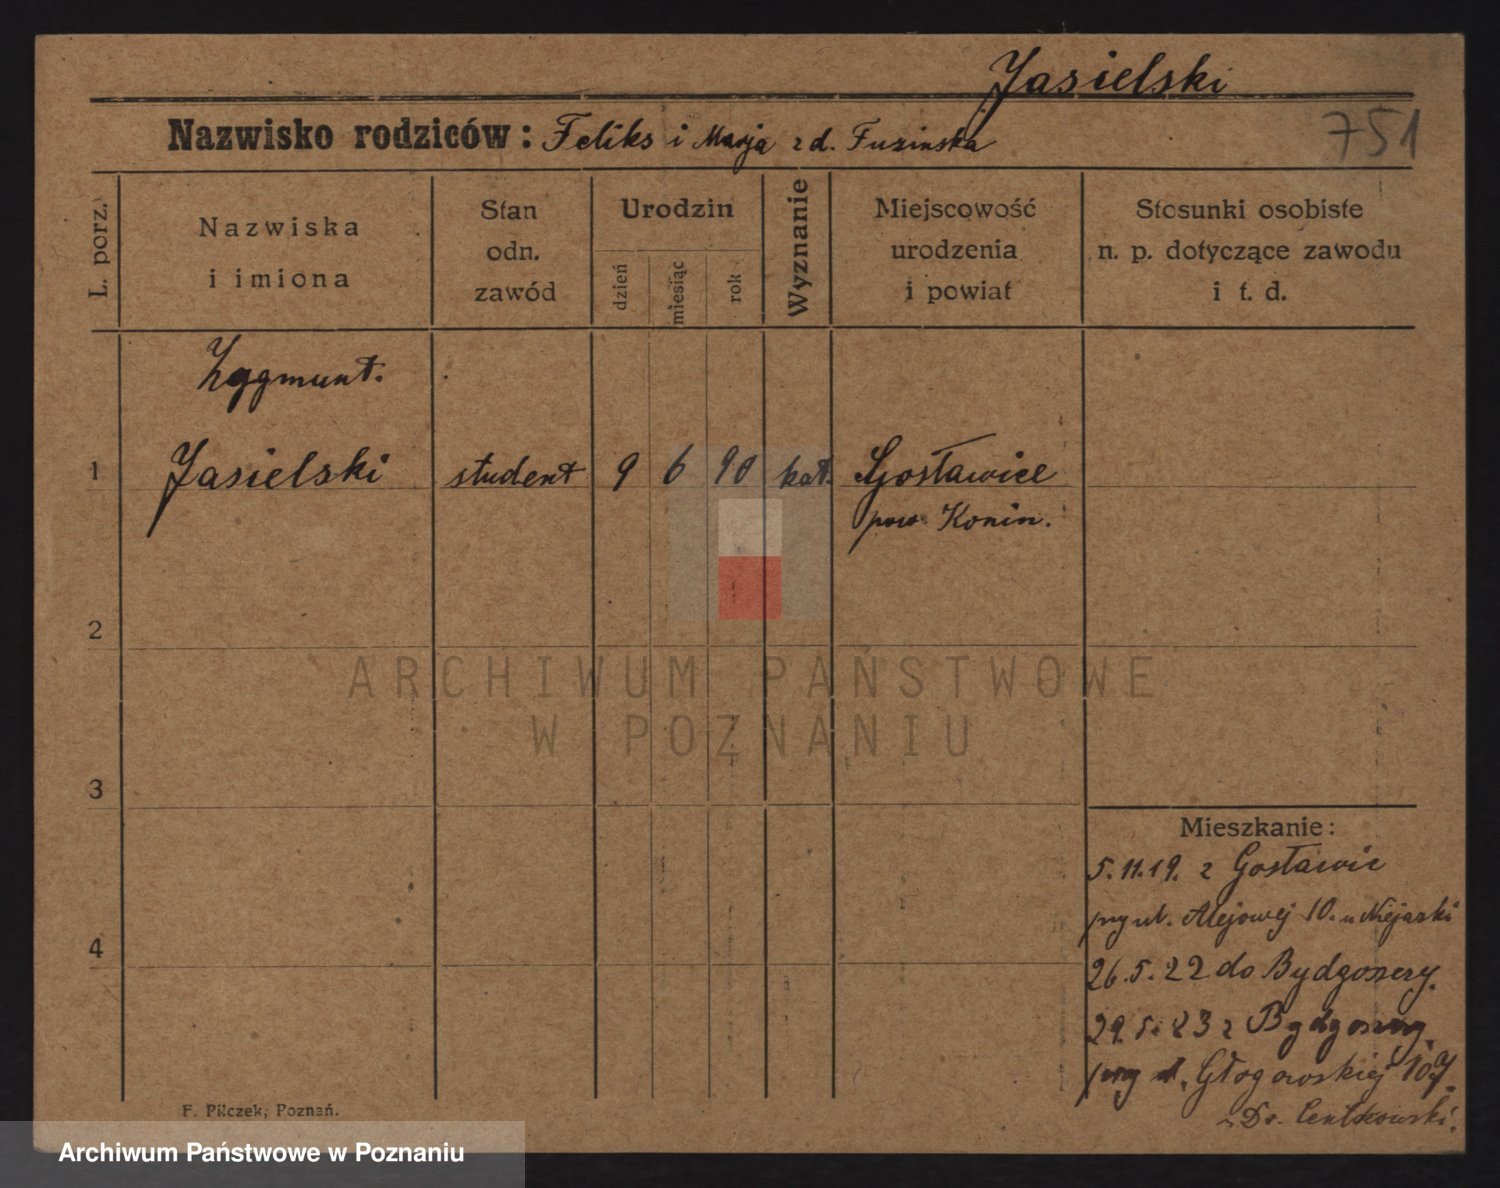 Jasielski
Nazwisko rodziców: Feliks i Marja z d. Fuzinska
751
L. porz.
Nazwiska
i imiona
Stan
odn.
zawód
Urodzin
dzień
miesiąc
rok
Wyznanie
Miejscowość
urodzenia
i powiat
Stosunki osobiste
n. p. dotyczące zawodu
i t. d.
Zygmunt.
1 Jasielski student 9 6 90 kat. Gosławice
pow. Konin.
2
ARCHIWUM PAŃSTWOWE
W POZNANIU
3
Mieszkanie:
5.11.19. z Gosławic
przy ul. Alejowej 10. u
4
26.5.22 do Bydgoszczy.
29.5.23 z Bydgoszczy
przy ul. Głogowskiej 107.
Dr. Centkowski.
F. Pilczek, Poznań.
Archiwum Państwowe w Poznaniu